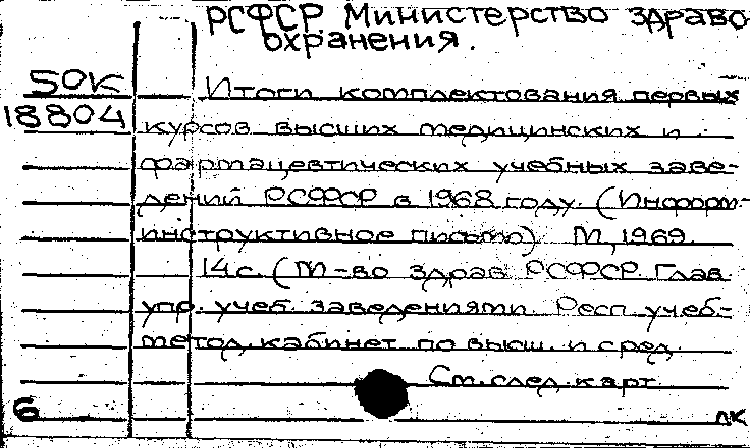 РСФСР Министерство здраво
охранения.
50К
Итоги комплектования первых
18804
курсов высших медицинских и
фармацевтических учебных заве-
дений РСФСР в 1968 году. (Информ.-
инструктивное письмо). М, 1969.
14 с. (М-во здрав. РСФСР. Глав.
упр. учеб. заведениями. Респ. учеб-
метод. кабинет по высш. и сред.
См. след. карт.
6
пк